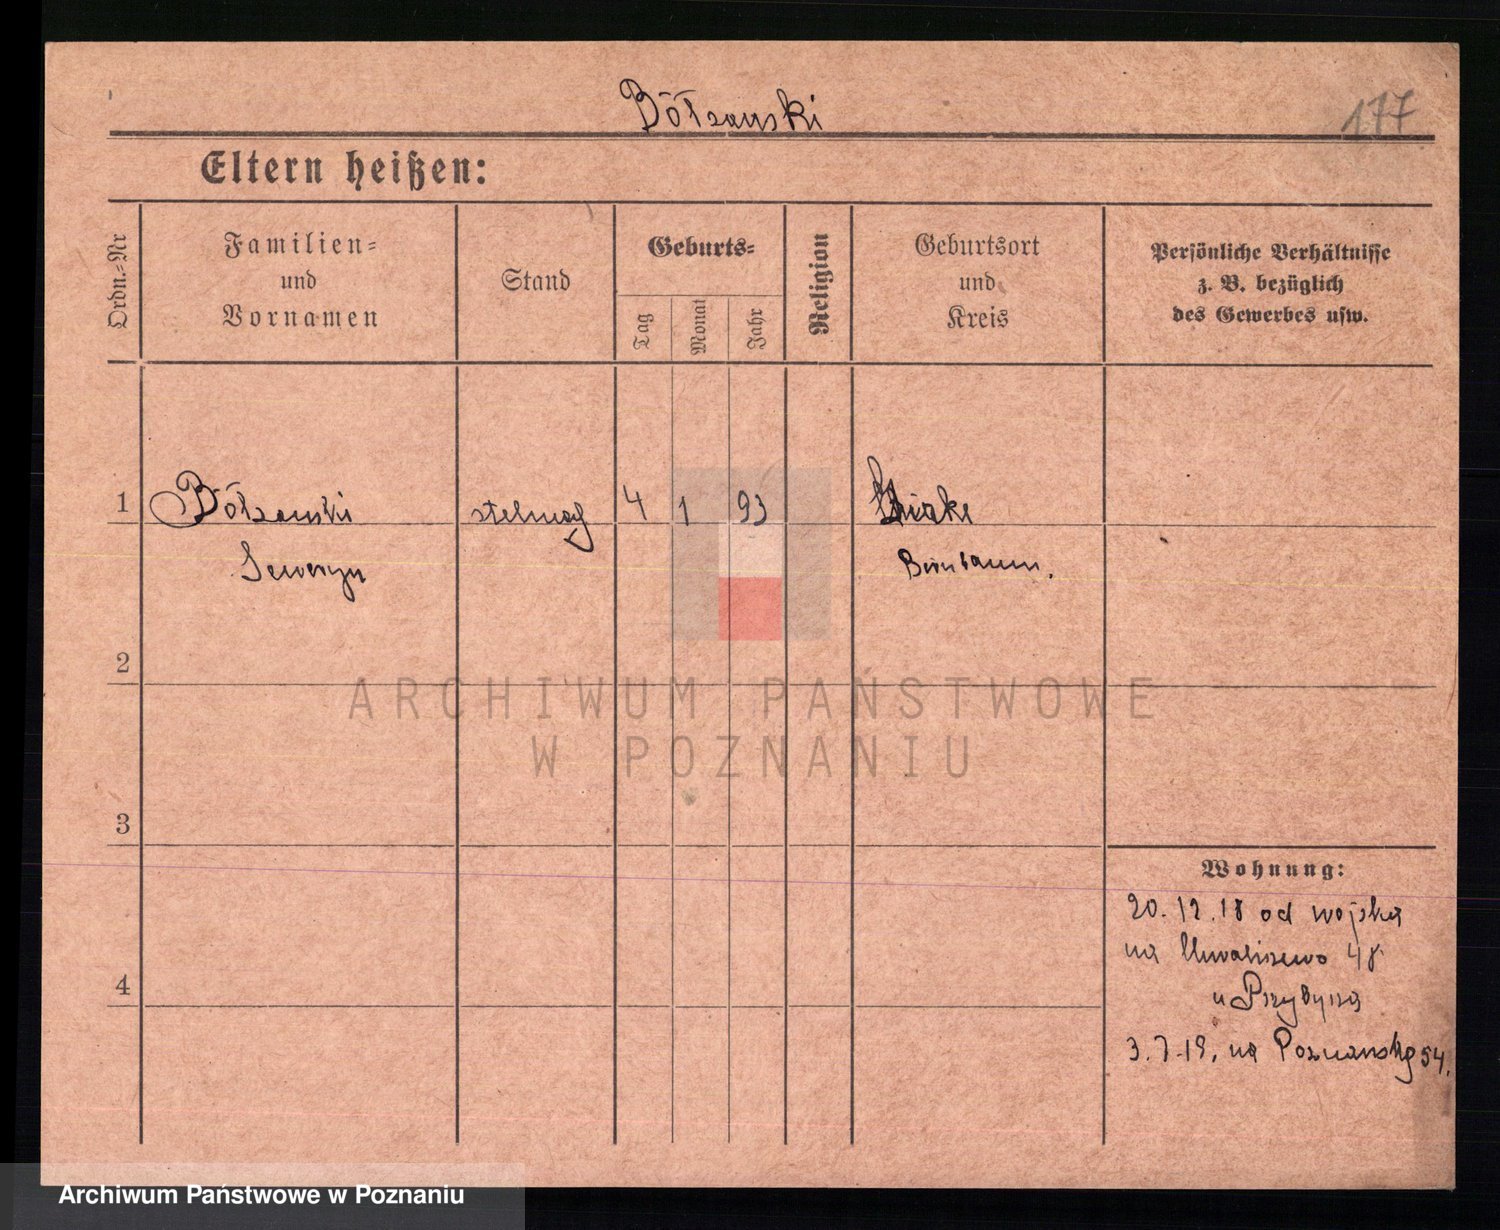 Bółzanski
177
Eltern heißen:
Ordn.-Nr
Familien-
und
Vornamen
Stand
Geburts-
Tag
Monat
Jahr
Religion
Geburtsort
und
Kreis
Persönliche Verhältnisse
z. B. bezüglich
des Gewerbes usw.
1
Bółzanski
stelmach
4
1
93
Seweryn
Birnbaum.
2
3
4
ARCHIWUM PAŃSTWOWE
W POZNANIU
Wohnung:
20.12.18 od wojska
na 48
u Przybysz
3.7.19. na Poznanską 54.
Archiwum Państwowe w Poznaniu